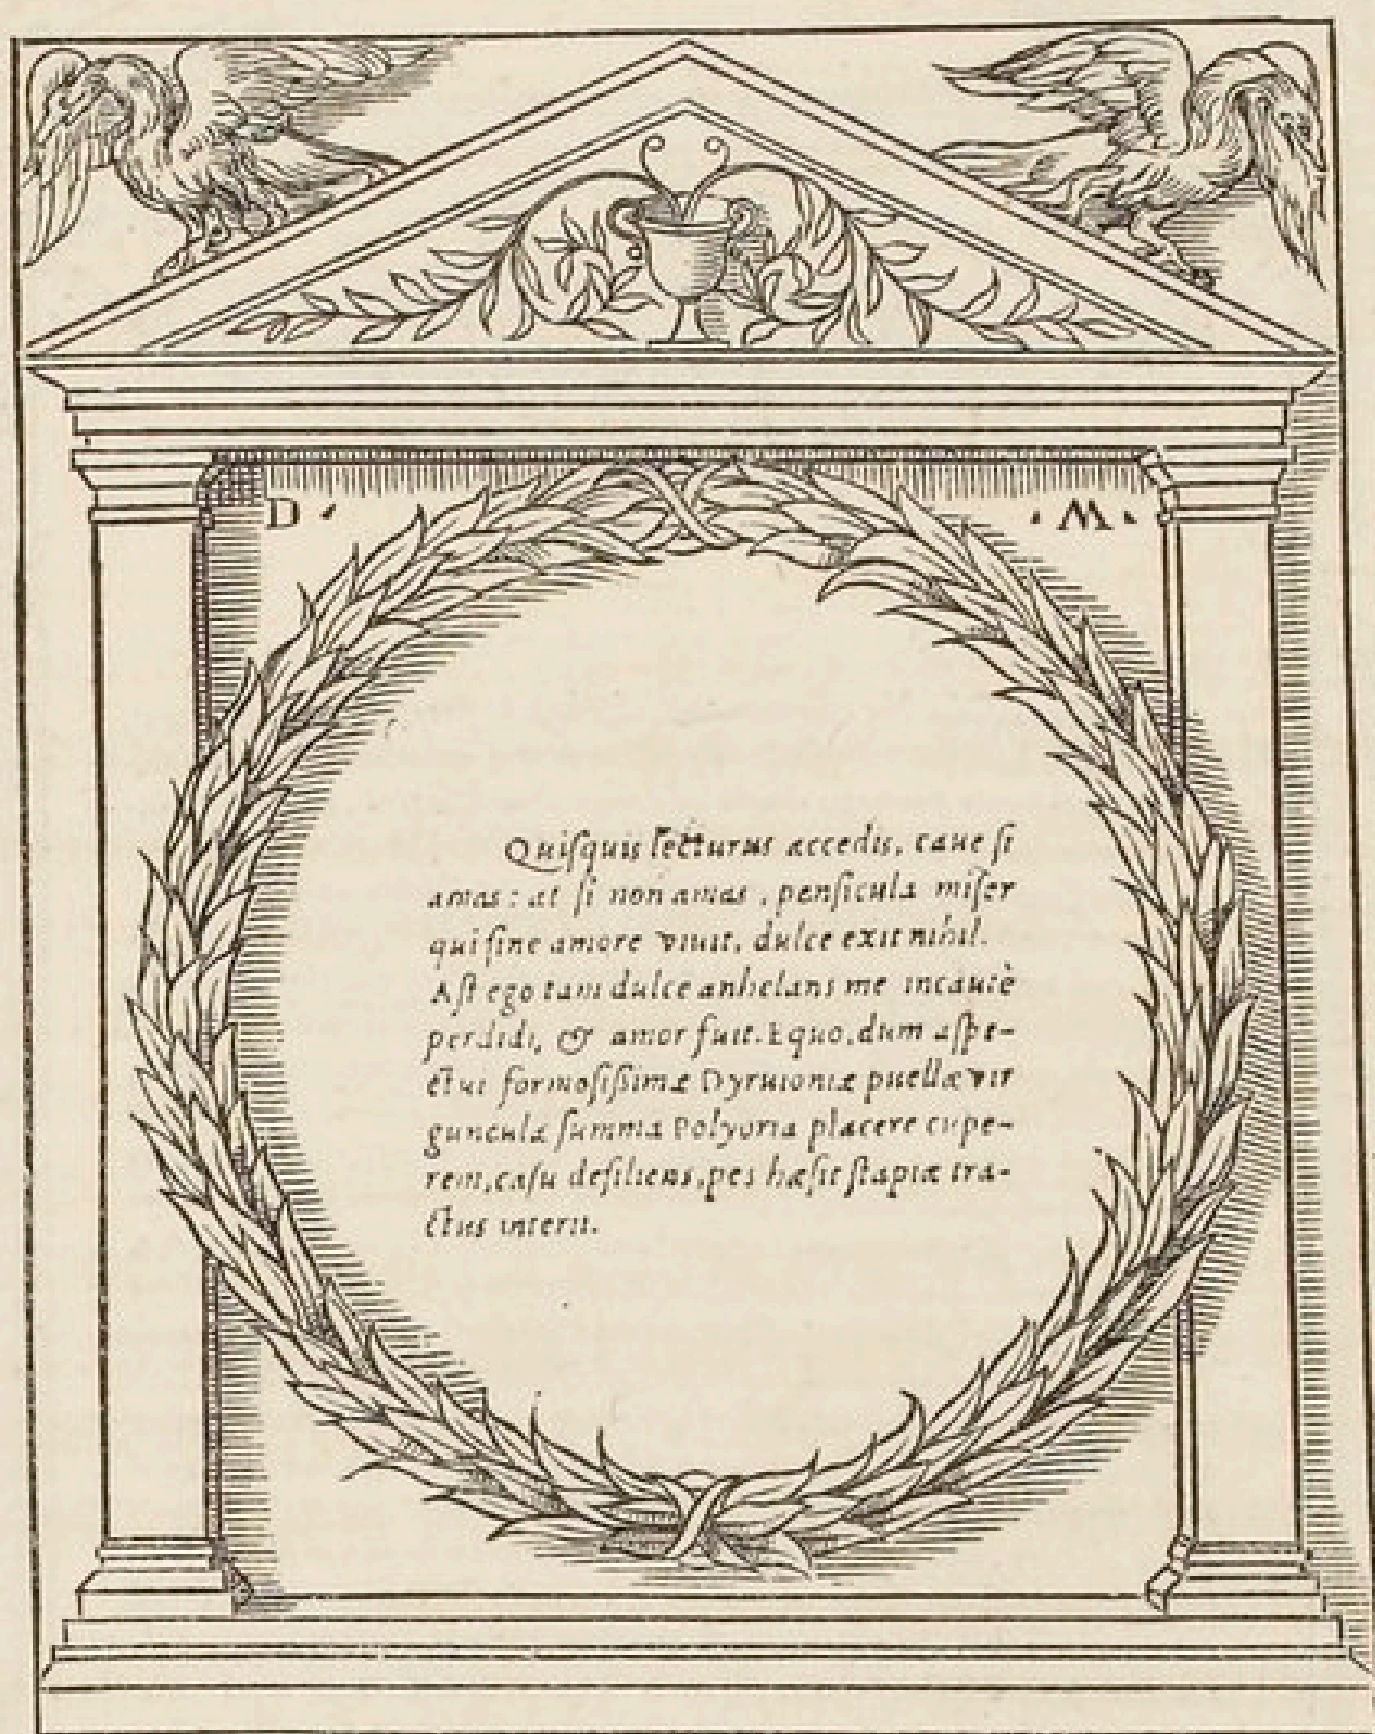 D · · M ·
Quiſquis lecturus accedis, caue ſi
amas: at ſi non amas, penſicula miſer
qui ſine amore viuit, dulce exit nihil.
Aſt ego tam dulce anhelans me incautè
perdidi, & amor fuit. Equo, dum aſpe-
ctui formoſiſsimæ Dyruioniæ puellæ vir
gunculæ ſumma Polyoria placere cupe-
rem, caſu deſiliens, pes hæſit ſtapiæ tra-
ctus interii.